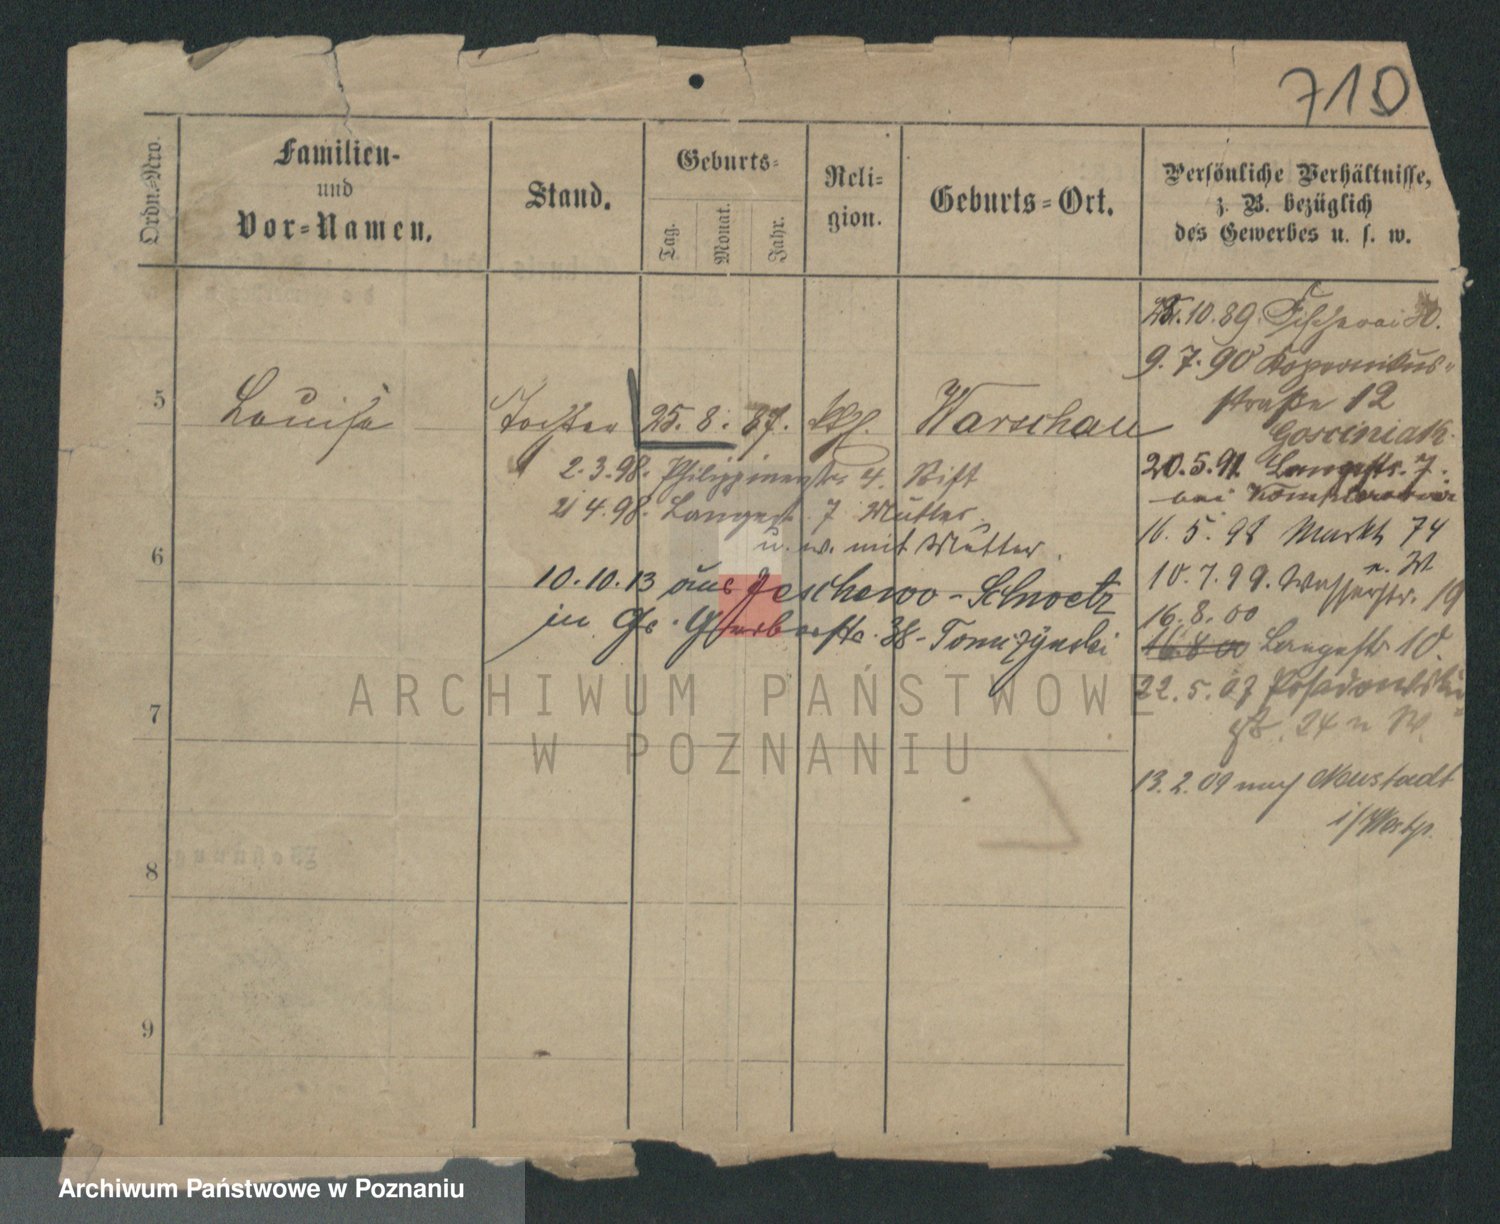 710
Ordn.-Nro.
Familien-
und
Vor-Namen.
Stand.
Geburts-
Tag.
Monat.
Jahr.
Reli-
gion.
Geburts-Ort.
Persönliche Verhältnisse,
z. B. bezüglich
des Gewerbes u. s. w.
10.89 Fischerei
9.7.90 Kopernikus-
straße 12
Gosciniak
5 Louise Tochter 25. 8. 87. kth. Warschau
20.5.91 Langestr. 7.
bei
2.3.98. Philippinenstr. 4. Stift
21 4.98. Langestr. 7 Mutter
u. w. mit Mutter.
16. 5. 98 Markt 74
u. W.
6
10.10.13 aus Jeschewo-Schwetz
in Gr. Gerberstr. 38 - Tomczynski
10.7.99. Wasserstr. 19
16.8.00
16.8.00 Langestr 10.
22.5.07
24 u W.
7
13.2.09 nach Neustadt
i/Westp.
8
9
ARCHIWUM PAŃSTWOWE
W POZNANIU
Archiwum Państwowe w Poznaniu